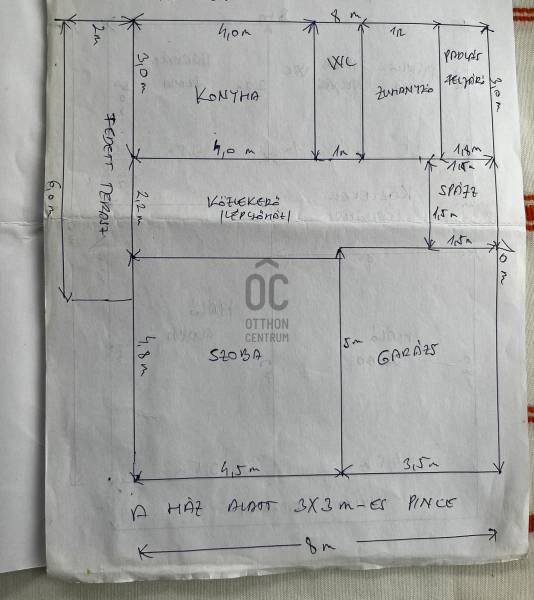 8 m
2m
4,0m
1m
3,0m
KONYHA
WC
ZUHANYZÓ
PADLÁS
FELJÁRÓ
3,0m
FEDETT TERASZ
6,0m
4,0m
1m
1,8m
1,5m
2,2m
KÖZLEKEDŐ
/LÉPCSŐHÁZ/
SPÁJZ
1,5m
1,5m
10 m
ÔC
OTTHON
CENTRUM
4,8m
SZOBA
5m
GARÁZS
4,5m
3,5m
A HÁZ ALATT 3X3 m-ES PINCE
8m